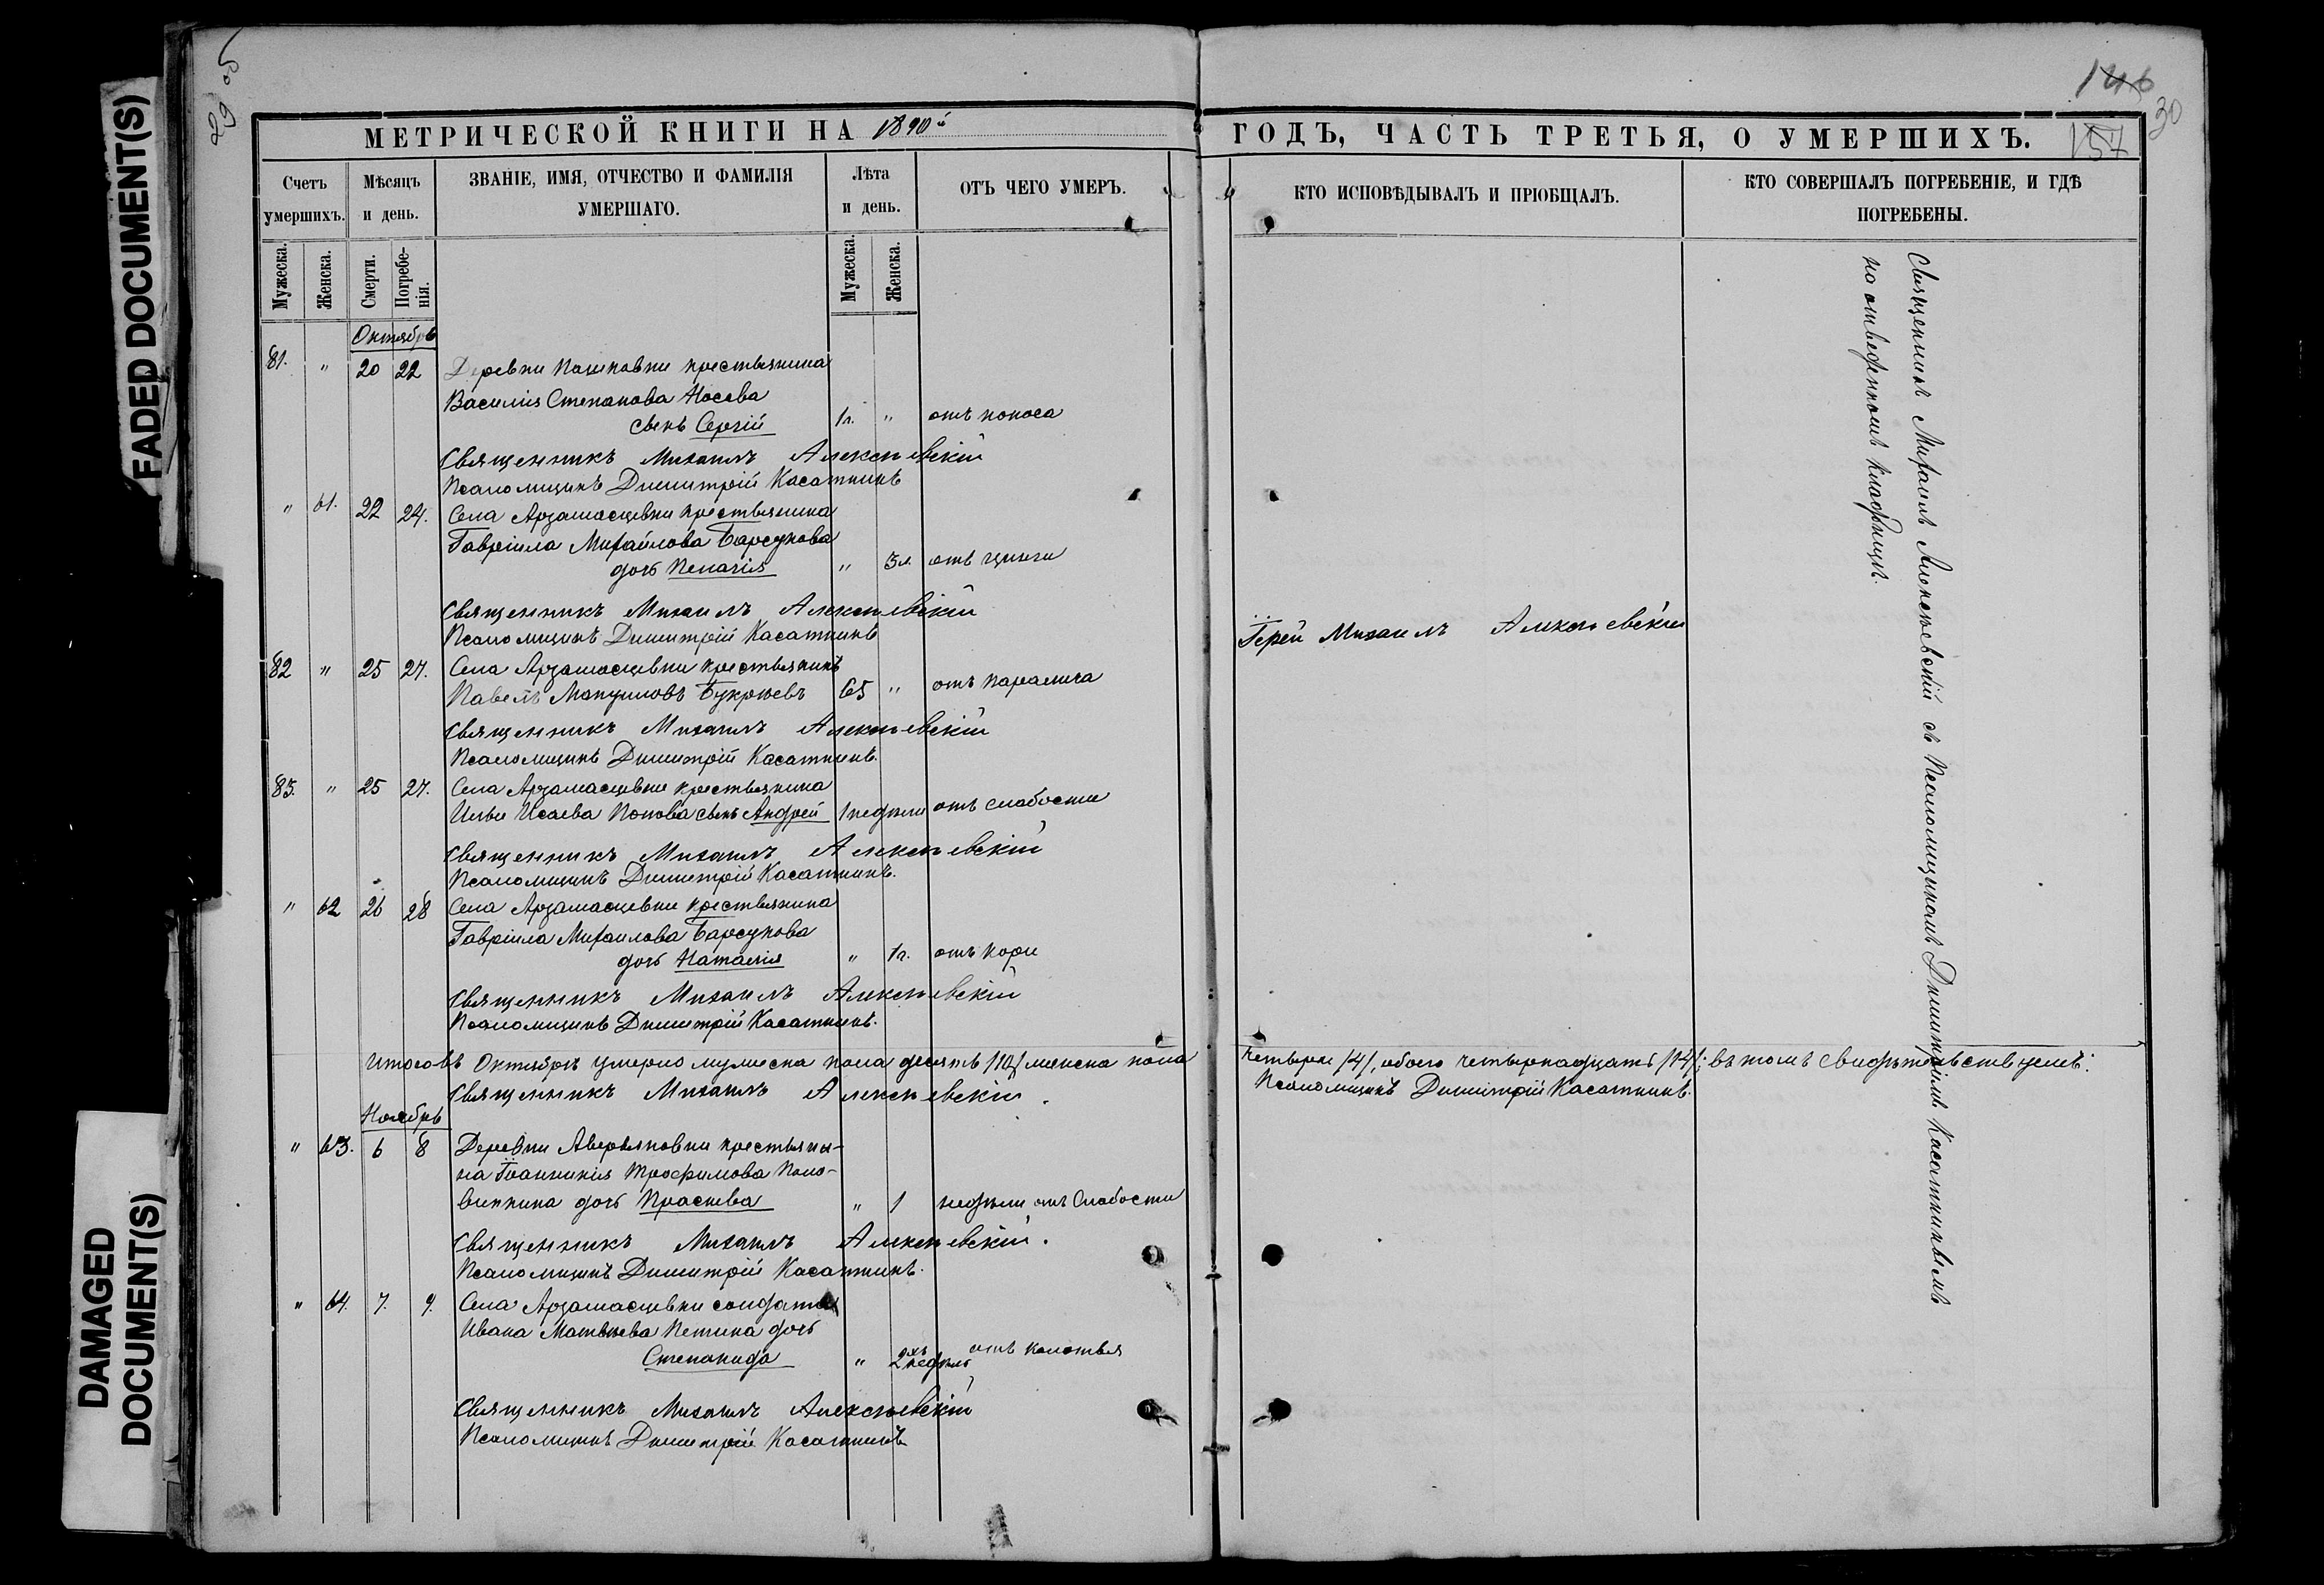 FADED DOCUMENT(S)
DAMAGED
DOCUMENT(S)
29 об
146
30
157
МЕТРИЧЕСКОЙ КНИГИ НА 1890й
ГОДЪ, ЧАСТЬ ТРЕТЬЯ, О УМЕРШИХЪ.
Счетъ умершихъ.
Мѣсяцъ и день.
ЗВАНІЕ, ИМЯ, ОТЧЕСТВО И ФАМИЛІЯ УМЕРШАГО.
Лѣта и день.
ОТЪ ЧЕГО УМЕРЪ.
КТО ИСПОВѢДЫВАЛЪ И ПРІОБЩАЛЪ.
КТО СОВЕРШАЛЪ ПОГРЕБЕНІЕ, И ГДѢ ПОГРЕБЕНЫ.
Мужеска.
Женска.
Смерти.
Погребе-
нія.
Мужеска.
Женска.
Октябрь
81. " 20 22 Деревни Пашковки крестьянина
Василія Степанова Носова
сынъ Сергій 1г. " отъ поноса
Священникъ Михаилъ Алексѣевскій
Псаломщикъ Димитрій Касаткинъ
" 61. 22 24. Села Арзамасцевки крестьянина
Гавріила Михайлова Барсукова
дочь Пелагія " 3л. отъ цынги
Священникъ Михаилъ Алексѣевскій
Псаломщикъ Димитрій Касаткинъ
Іерей Михаилъ Алексѣевскій
82 " 25 27. Села Арзамасцевки крестьянинъ
Павелъ Букрѣевъ 65 " отъ паралича
Священникъ Михаилъ Алексѣевскій
Псаломщикъ Димитрій Касаткинъ.
83. " 25 27. Села Арзамасцевки крестьянина
Ильи Исаева Попова сынъ Андрей 1 недѣли отъ слабости
Священникъ Михаилъ Алексѣевскій
Псаломщикъ Димитрій Касаткинъ.
" 62 26 28 Села Арзамасцевки крестьянина
Гавріила Михаилова Барсукова
дочь Наталія " 1г. отъ кори
Священникъ Михаилъ Алексѣевскій
Псаломщикъ Димитрій Касаткинъ.
Итого въ Октябрѣ умерло мужеска пола десять /10/ женска пола
четыре /4/, обоего четырнадцать /14/; въ томъ свидѣтельствуемъ:
Священникъ Михаилъ Алексѣевскій.
Псаломщикъ Димитрій Касаткинъ.
Ноябрь
" 63. 6 8 Деревни Аверьяновки крестьяни-
на Іоанникія Трофимова Поло-
винкина дочь Праскева " 1 недѣли отъ слабости
Священникъ Михаилъ Алексѣевскій.
Псаломщикъ Димитрій Касаткинъ.
" 64. 7. 9. Села Арзамасцевки солдата
Ивана Матвѣева Петина дочь
Степанида " 2хъ недѣль отъ колотья
Священникъ Михаилъ Алексѣевскій
Псаломщикъ Димитрій Касаткинъ
Священникъ Михаилъ Алексѣевскій съ Псаломщикомъ Димитріемъ Касаткинымъ
на отведенномъ кладбищѣ.